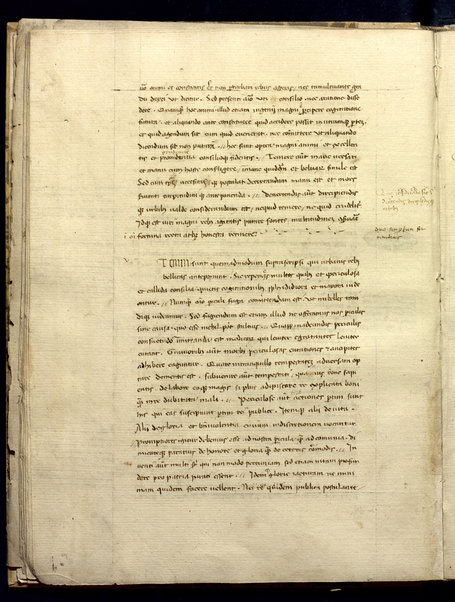 uo animi et constantis est non perturbari rebus asperis nec tumultuantem gra
du deici ut dicitur. Sed presenti animo uti et consilio nec a ratione disce
dere. Quamquam hoc animi illud etiam ingenii magni percipere cogitatione
futura et aliquando ante constituere quid accidere possit in utramque partem
et quid agendum sit cum quid evenerit. nec comittere ut aliquando
dicendum sit non putaram. // hec sunt opera magni animi et excellen
tis et prudentia consilioque fidentis. // Temere autem in acie versari
et manu cum hoste confligere. imane quiddam et beluis simile est
Sed cum tempus necessitasque postulat decertandum manu est et mors
servituti turpitudinique anteponenda // De evertendis autem diripiendis
que urbibus valde considerandum est ne quid temere, ne quid crudeliter.
Idque est viri magni rebus agitatis punire sontes, multitudinem conservare
in omni fortuna recta atque honesta retinere.
Ut enim sunt quemadmodum supra scripsi qui urbanis rebus
bellicas anteponunt. Sic reperies multos quibus periculosa
et callida consilia quietis cogitationibus splendidiora et maiora vide
antur. // Nunquam omnino periculi fuga comittendum est ut imbelles timi
dique videamur. Sed fugiendum est etiam illud ne offeramus nos periculis
sine causa. quo esse nichil potest stultius. // Quapropter in adeundis periculis
consuetudo imitanda est medicorum. qui leviter egrotantes leviter
curant. Gravioribus autem morbis periculosas curationes et ancipites
adhibere coguntur. Quare in tranquillo tempestatem adversam op
tare dementis est. subvenire autem tempestati quavis ratione sapi
entis. eoque magis si plus adipiscare re explicata boni
quam in re dubitata mali. // Periculose autem actiones partim suis
his qui eas suscipiunt partim rei publice. Itemque alii de vita.
Alii de gloria et benivolentia civium in discrimen vocantur.
Promptiores igitur debemus esse ad nostra pericula quam ad comunia. di
micareque paratius de honore et gloria quam de ceteris comodis. // In
venti autem multi sunt qui non modo pecuniam sed etiam vitam profun
dere pro patria parati essent. // Idem glorie iacturam ne mini
mam quidem facere vellent. Ne re quidem publica postulante